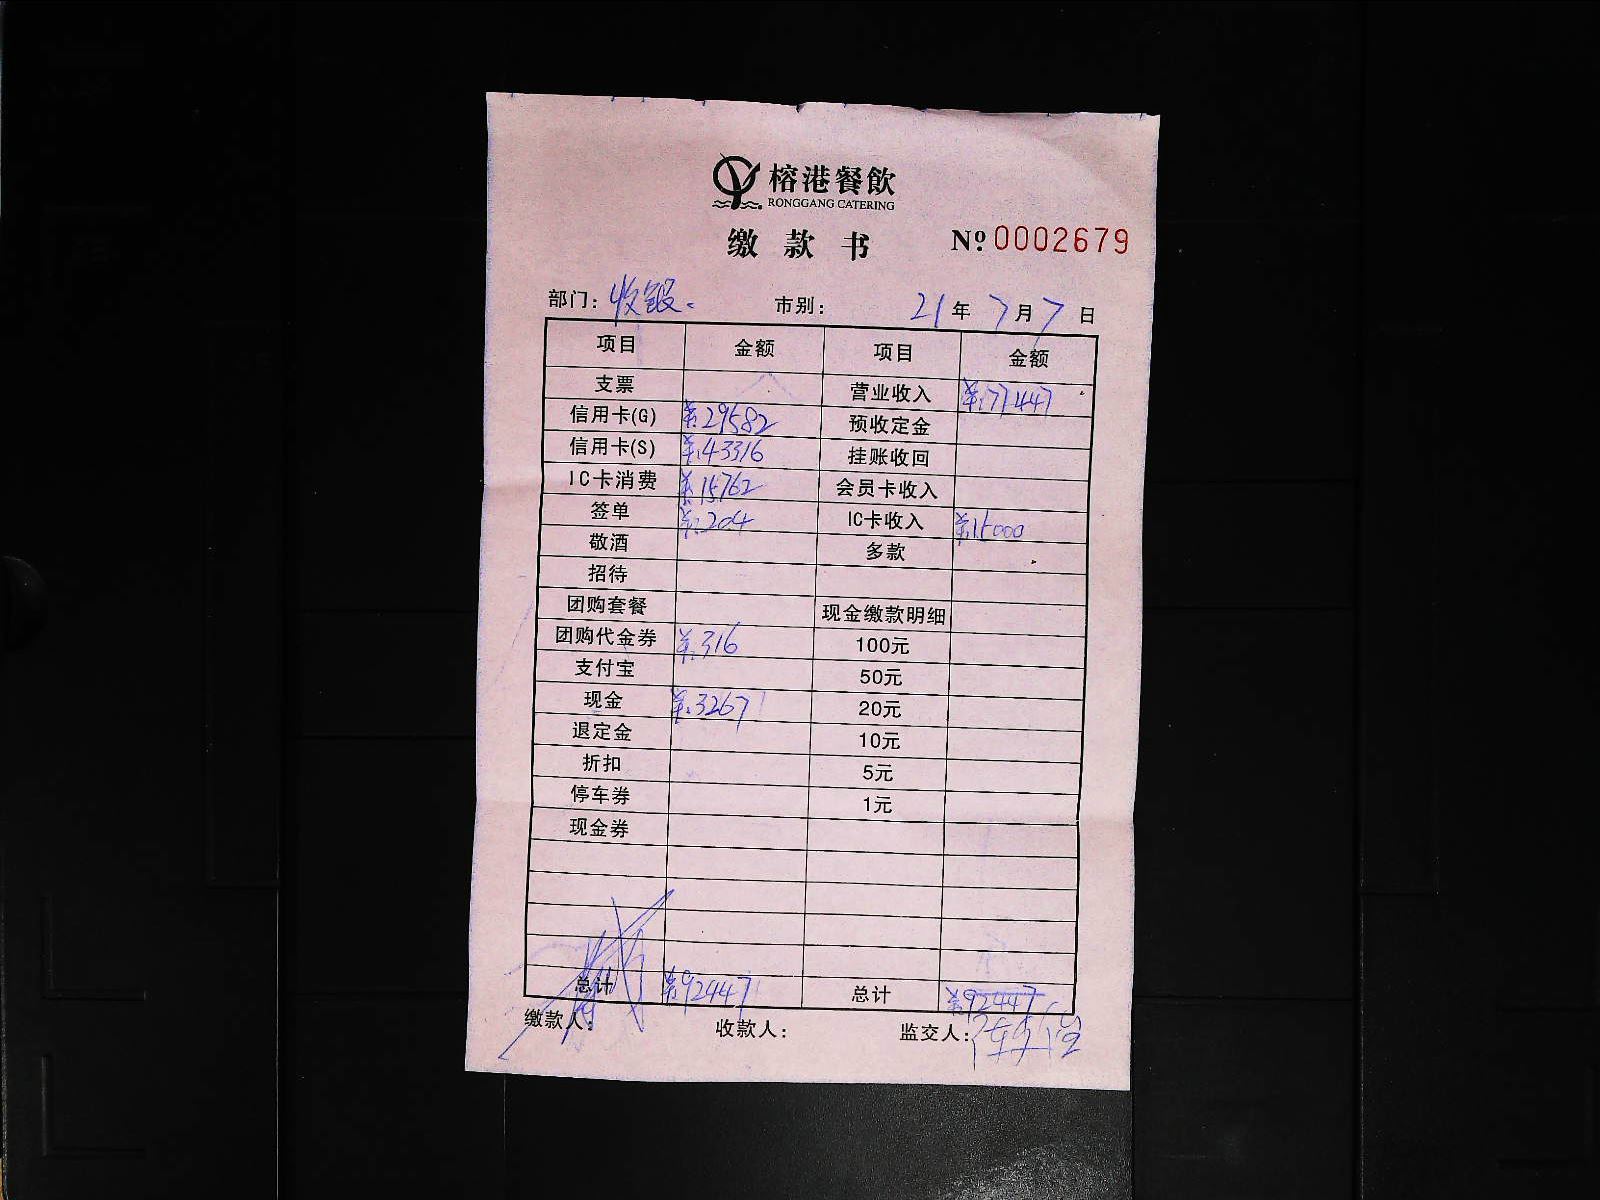 榕港餐飲
RONGGANG CATERING
缴款书 №0002679
部门: 收银 市别: 21年7月7日
项目 金额 项目 金额
支票 营业收入 ¥:77447
信用卡(G) ¥:29582 预收定金
信用卡(S) ¥:43316 挂账收回
IC卡消费 ¥:15762 会员卡收入
签单 ¥:204 IC卡收入 ¥:15000
敬酒 多款
招待
团购套餐 现金缴款明细
团购代金券 ¥:316 100元
支付宝 50元
现金 ¥:3267 20元
退定金 10元
折扣 5元
停车券 1元
现金券
总计 ¥:92447 总计 ¥:92447
缴款人: 收款人: 监交人: